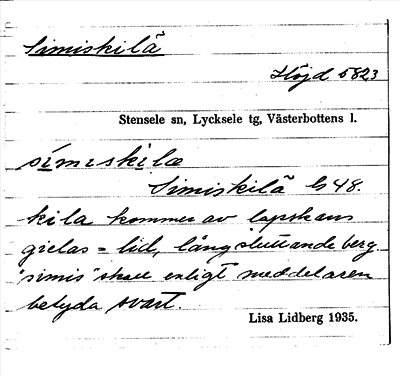 Simiskilå
Höjd 5823
Stensele sn, Lycksele tg, Västerbottens l.
símıskilɑ
Simiskilå G 48.
kila kommer av lapskans
gielas = lid, långsluttande berg.
"simis" skall enligt meddelaren
betyda svart.
Lisa Lidberg 1935.